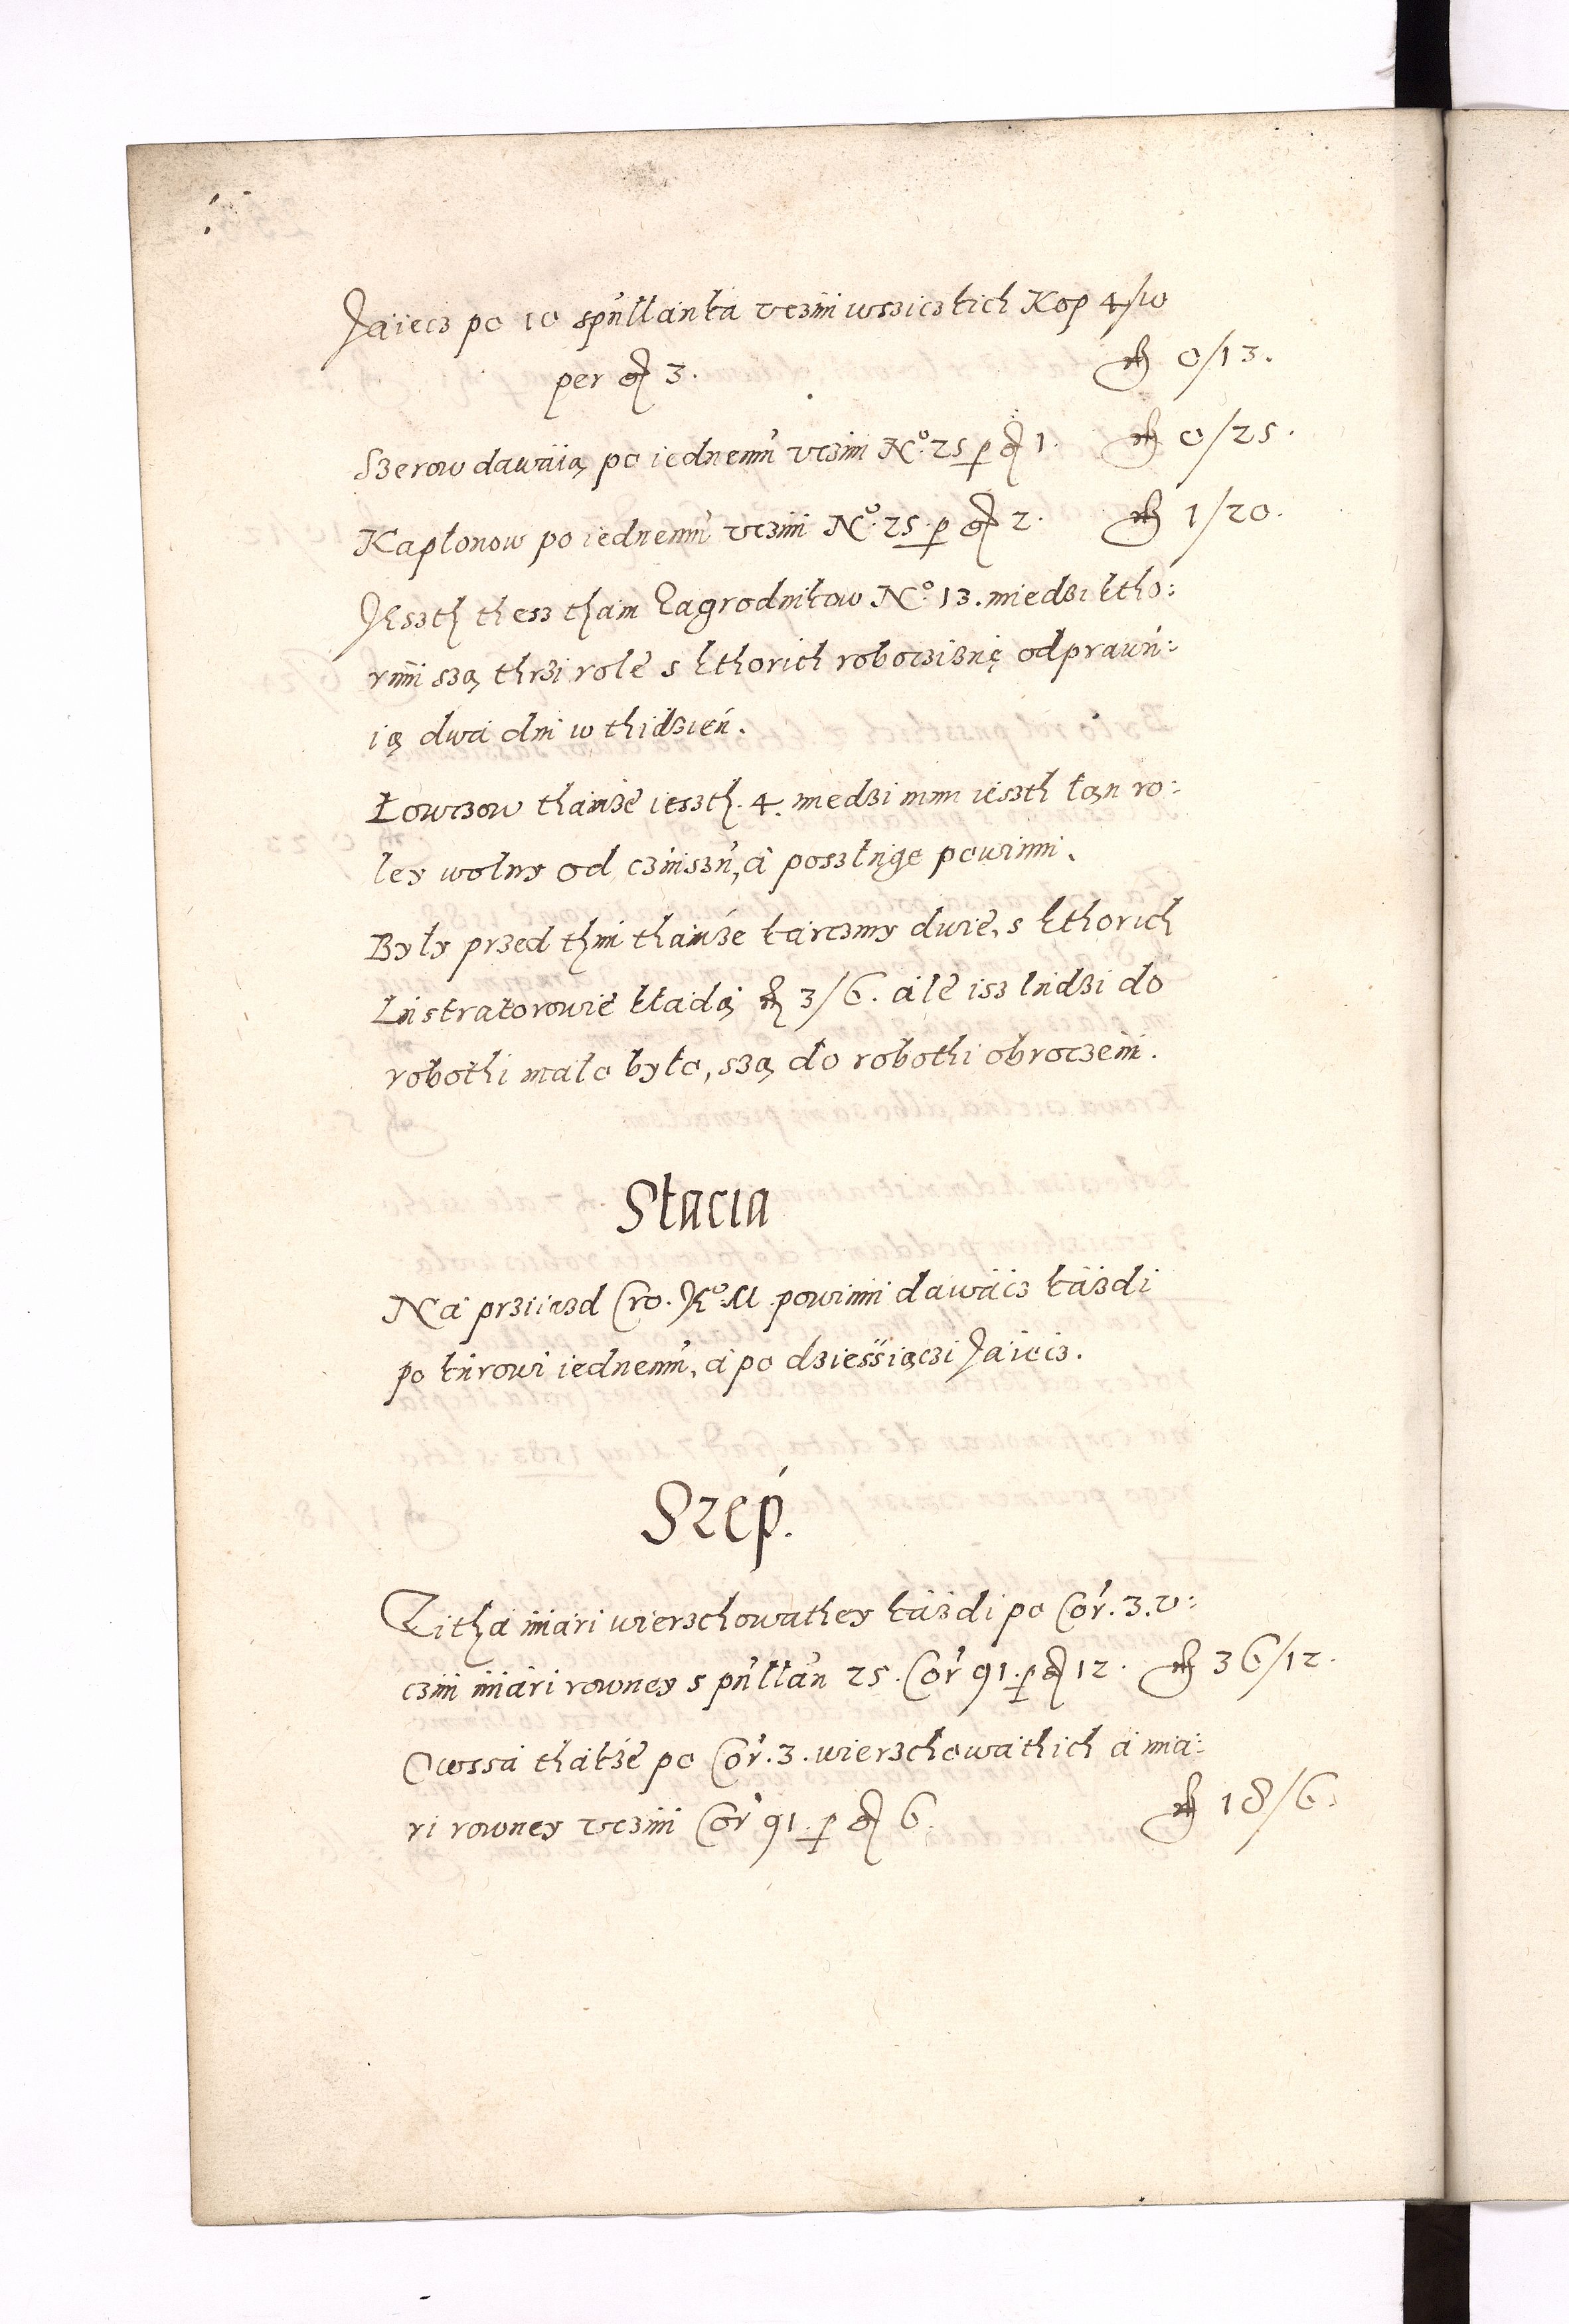 Jaiecz po 10 spułłanka vczini wssiczkich Kop 4/10
per gr 3. fl 0/13.
Szerow dawaią po iednemu vczini No. 25 p gr 1. fl 0/25.
Kapłonow po iednemu vczini No. 25. p gr 2. fl 1/20.
Jeszth thesz tham Zagrodnikow No. 13. miedzi ktho:
rimi szą thrzi role s kthorich robocziznę odprawu:
ią dwa dni w thidzien.
Łowczow thamże ieszth. 4. miedzi nimi ieszth łan ro:
ley wolny od czinszu, a poszługę powinni.
Były przed thim thamże karczmy dwie, s kthorich
Lustratorowie kładą fl 3/6. ale isz ludzi do
robothi mało było, szą do robothi obroczeni.
Stacia
Na prziiazd Cro. Ko. M. powinni dawacz kazdi
po kurowi iednemu, a po dziessiączi Jaiecz.
Szep.
Zitha miari wierzchowathey kazdi po Cor. 3. v:
czini miari rowney s pułłan 25. Cor 91. p gr 12. fl 36/12.
Owssa thakże po Cor. 3. wierzchowathich a mia:
ri rowney vczini Cor 91. p gr 6. fl 18/6.